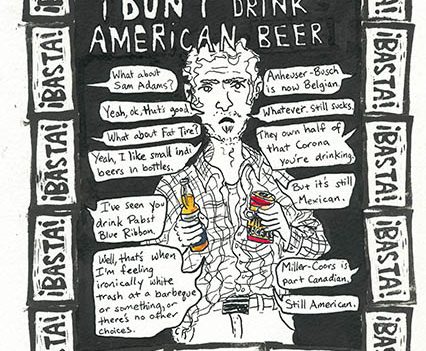 I DON'T DRINK
AMERICAN BEER
What about
Sam Adams?
Yeah, ok, that's good
What about Fat Tire?
Yeah, I like small indi
beers in bottles.
I've seen you
drink Pabst
Blue Ribbon.
Well, that's when
I'm feeling
ironically white
trash at a barbeque
or something, or
there's no other
choices.
Anheuser-Busch
is now Belgian
Whatever. Still sucks.
They own half of
that Corona
you're drinking.
But it's still
Mexican.
Miller-Coors is
part Canadian.
Still American.
¡BASTA!
¡BASTA!
¡BASTA!
¡BASTA!
¡BASTA!
¡BASTA!
¡BASTA!
¡BASTA!